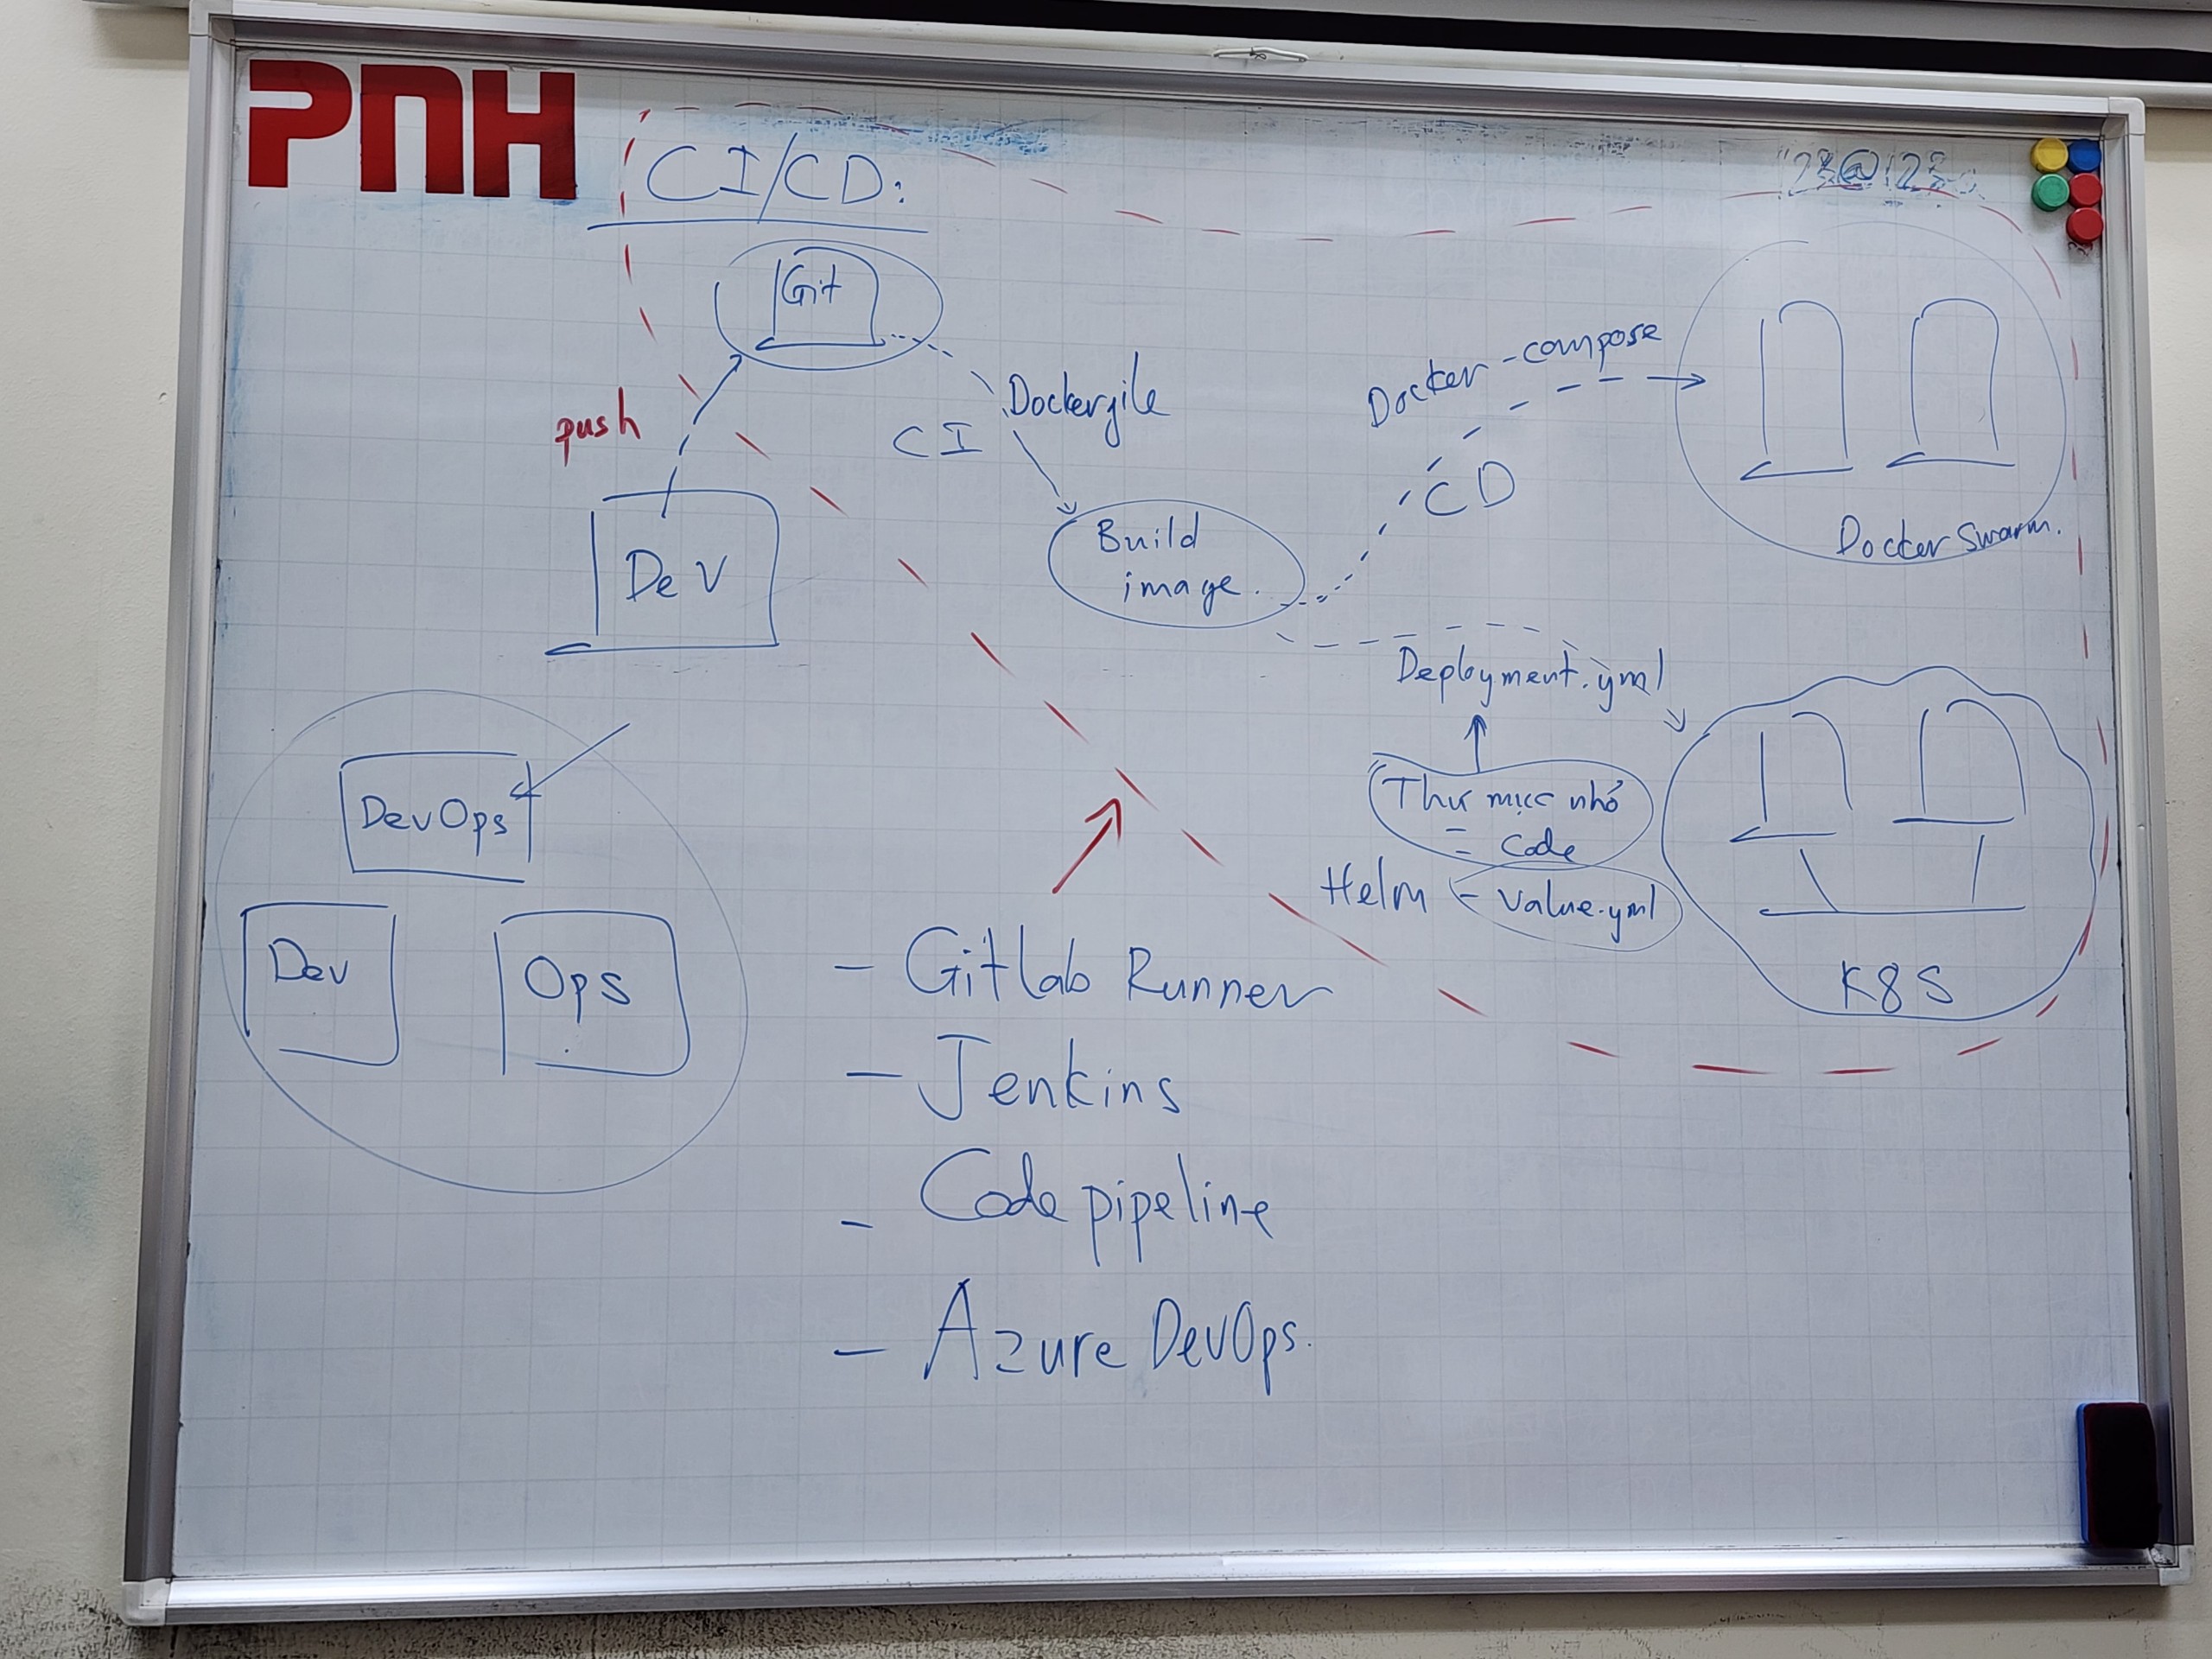 PNH
CI/CD:
Git
push
Dockerfile
CI
Docker-compose
CD
Docker Swarm.
Dev
Build
image.
Deployment.yml
Thư mục nhỏ
= Code
Helm - Value.yml
K8S
DevOps
Dev
Ops
- Gitlab Runner
- Jenkins
- Code pipeline
- Azure DevOps.